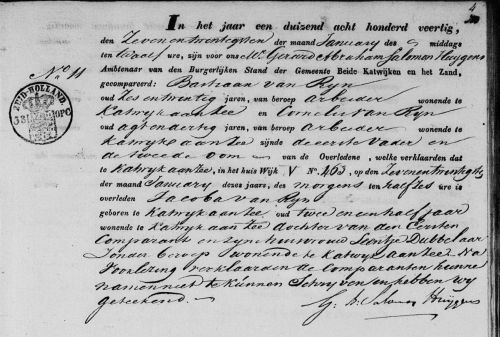 4
In het jaar een duizend acht honderd veertig,
den Zevenentwintigsten der maand January des middags
ten twaalf ure, zijn voor ons Mr. Gerard Abraham Salomon Huygens
Ambtenaar van den Burgerlijken Stand der Gemeente Beide Katwijken en het Zand,
No 11
gecompareerd: Bastiaan van Ryn
oud zesentwintig jaren, van beroep arbeider wonende te
Katwyk aan Zee en Cornelis van Ryn
oud agtendertig jaren, van beroep arbeider wonende te
Katwyk aan Zee zijnde de eerste Vader en
de tweede oom van de Overledene, welke verklaarden dat
te Katwyk aan Zee, in het huis Wijk V No. 403, op den Zevenentwintigsten
der maand January dezes jaars, des morgens ten half zes ure is
overleden Jacoba van Ryn
geboren te Katwyk aan Zee oud twee en een half jaar
wonende te Katwyk aan Zee dochter van den Eersten
Comparant en zyn huisvrouw Leentje Dubbelaar
Zonder beroep wonende te Katwyk aan Zee. Na
Voorlezing verklaarden de Comparanten hunne
namen niet te kunnen Schryven en hebben wy
geteekend.
ZUID-HOLLAND